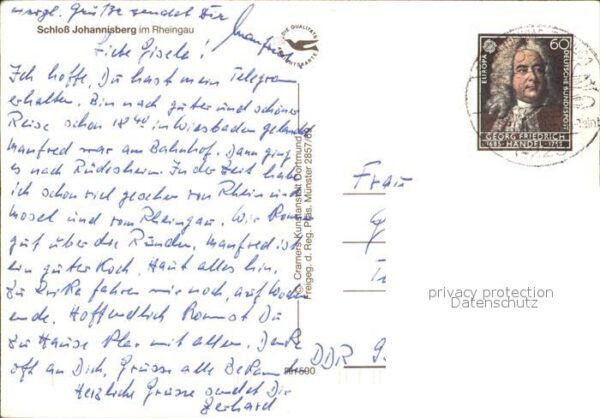 herzl. Grüße sendet Dir
Manfred
Schloß Johannisberg im Rheingau
DIE QUALITÄTS
Liebe Gisela!
Ich hoffe, Du hast mein Telegram
erhalten. Bin nach guter und schöner
Reise schon 18 40 in Wiesbaden gelandet
Manfred war am Bahnhof. Dann ging
es nach Rüdesheim. In der Zeit habe
ich schon viel gesehen von Rhein und
Mosel und vom Rheingau. Wir kommen
gut über die Runden. Manfred ist
ein guter Koch. Haut alles hin.
Zu fahren wir noch, auf Wochen
ende. Hoffendlich kommst Du
zu Hause klar mit allem. Denke
oft an Dich. Grüsse alle Bekannt
Herzliche Grüsse sendet Dir
Gerhard
Cramers Kunstanstalt Dortmund
Freigeg. d. Reg. Präs. Münster 2857/
EUROPA
60
DEUTSCHE BUNDESPOST
GEORG FRIEDRICH
1685 HÄNDEL 1759
Frau
DDR
privacy protection
Datenschutz